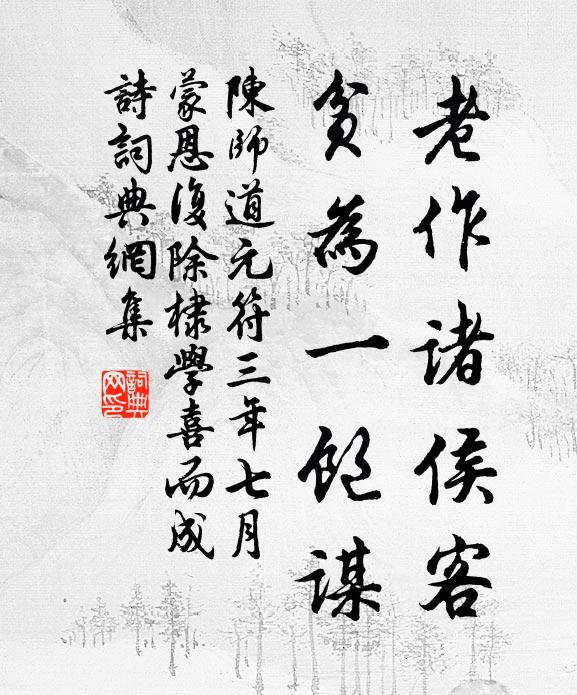 老作诸侯客
貧為一飽謀
陳師道元符三年七月
蒙恩復除棣學喜而成
詩詞典網集
詞典網印